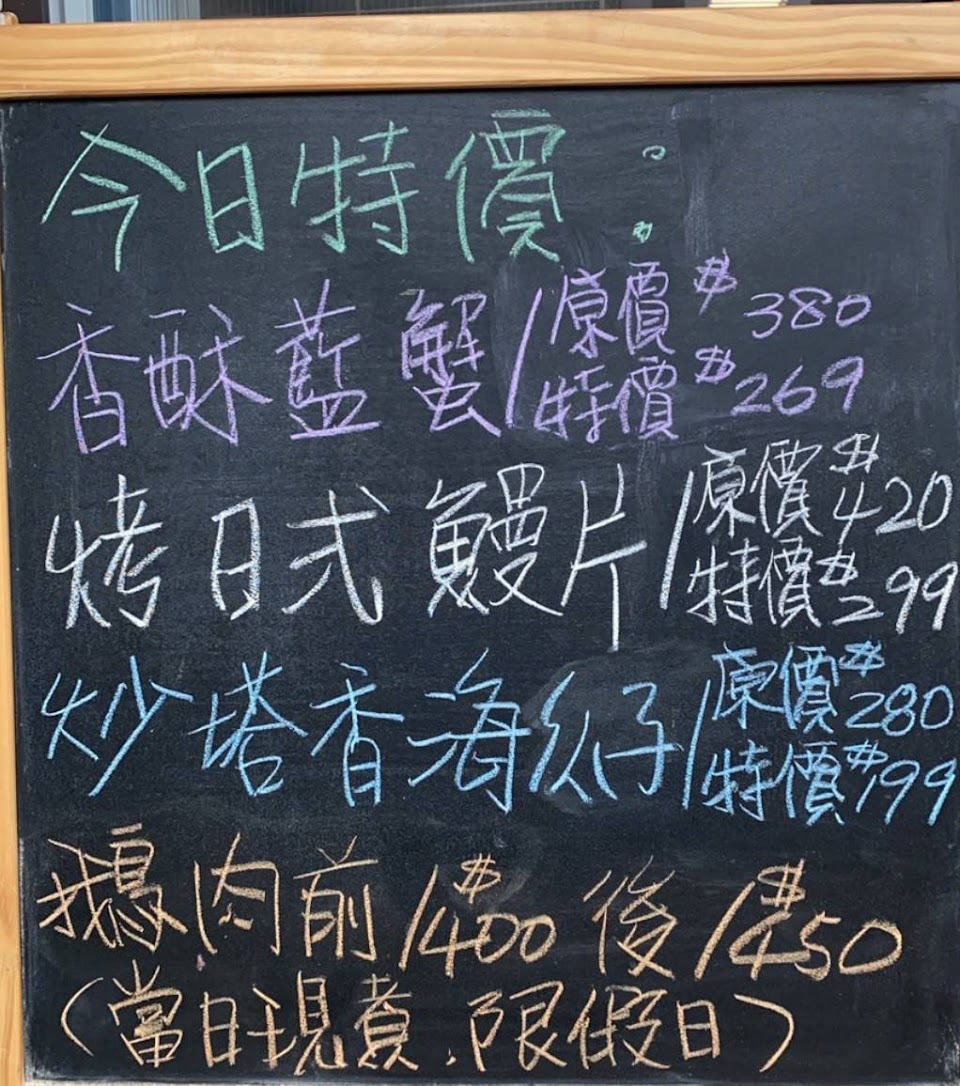 今日特價：
香酥藍蟹/原價$380
特價$269
烤日式鰻片/原價$420
特價$299
炒塔香海瓜仔/原價$280
特價$199
鵝肉前/$400 後/$450
（當日現煮.限假日）